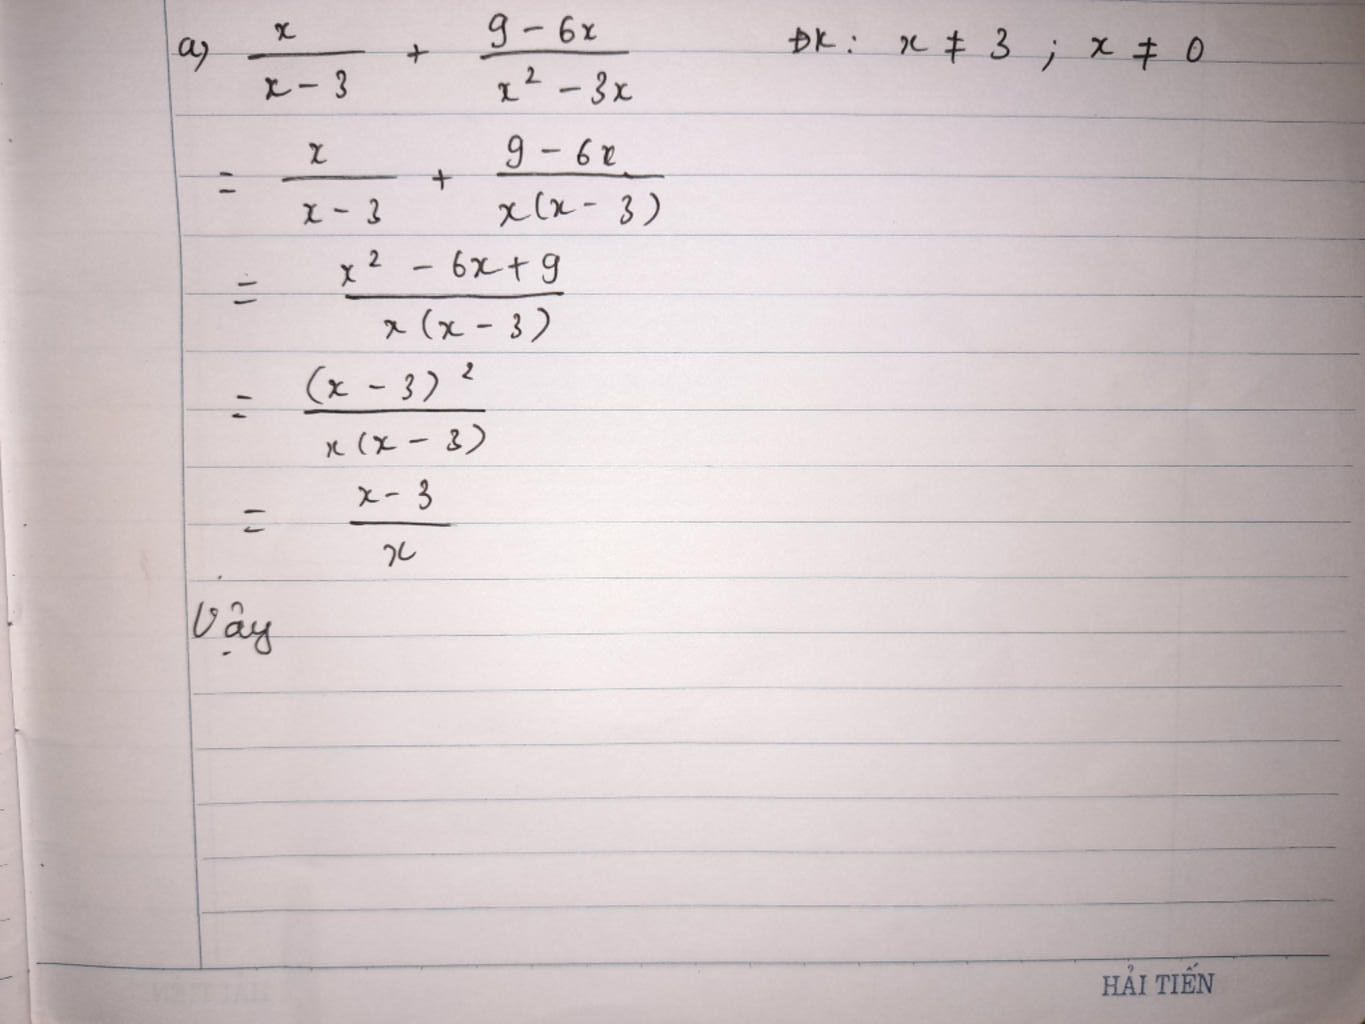 a) x/(x - 3) + (9 - 6x)/(x² - 3x) ĐK: x ≠ 3 ; x ≠ 0
= x/(x - 3) + (9 - 6x)/(x(x - 3))
= (x² - 6x + 9)/(x(x - 3))
= (x - 3)²/(x(x - 3))
= (x - 3)/x
Vậy
HẢI TIẾN